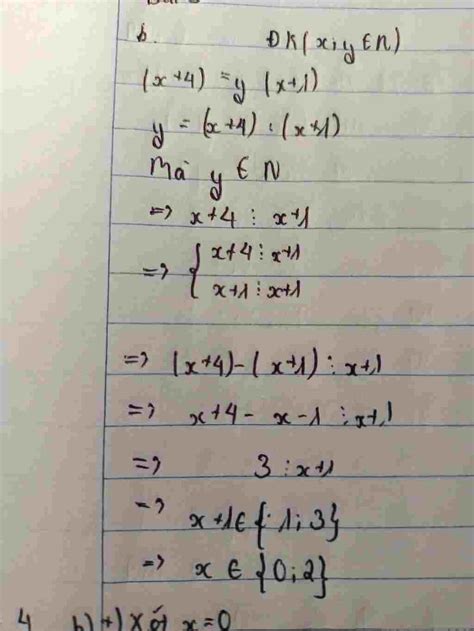 b. ĐK(x;y∈N)
(x+4) = y (x+1)
y = (x+4) : (x+1)
Mà y ∈ N
=> x+4 ⋮ x+1
=> { x+4 ⋮ x+1
x+1 ⋮ x+1
=> (x+4)-(x+1) ⋮ x+1
=> x+4- x -1 ⋮ x+1
=> 3 ⋮ x+1
=> x+1∈{1;3}
=> x ∈ {0;2}
4 b) +) Xét x=0